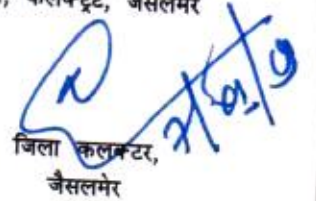 कलक्ट्रेट, जैसलमेर
जिला कलक्टर,
जैसलमेर